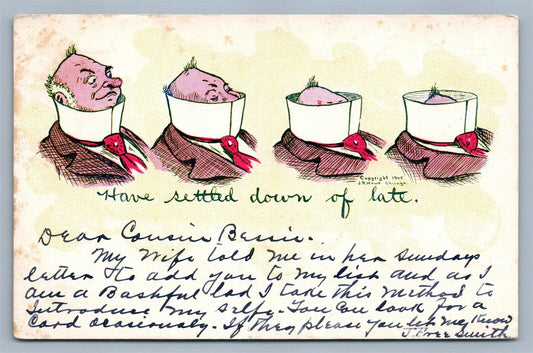 Copyright 1905
Chicago.
Have settled down of late.
Dear Cousin Bessie.
My Wife told me in her Sundays
letter to add you to my list and as I
am a Bashful lad I take this method to
Introduce my selfe. You can look for a
Card ocasionaly. If they please you let me know
Smith